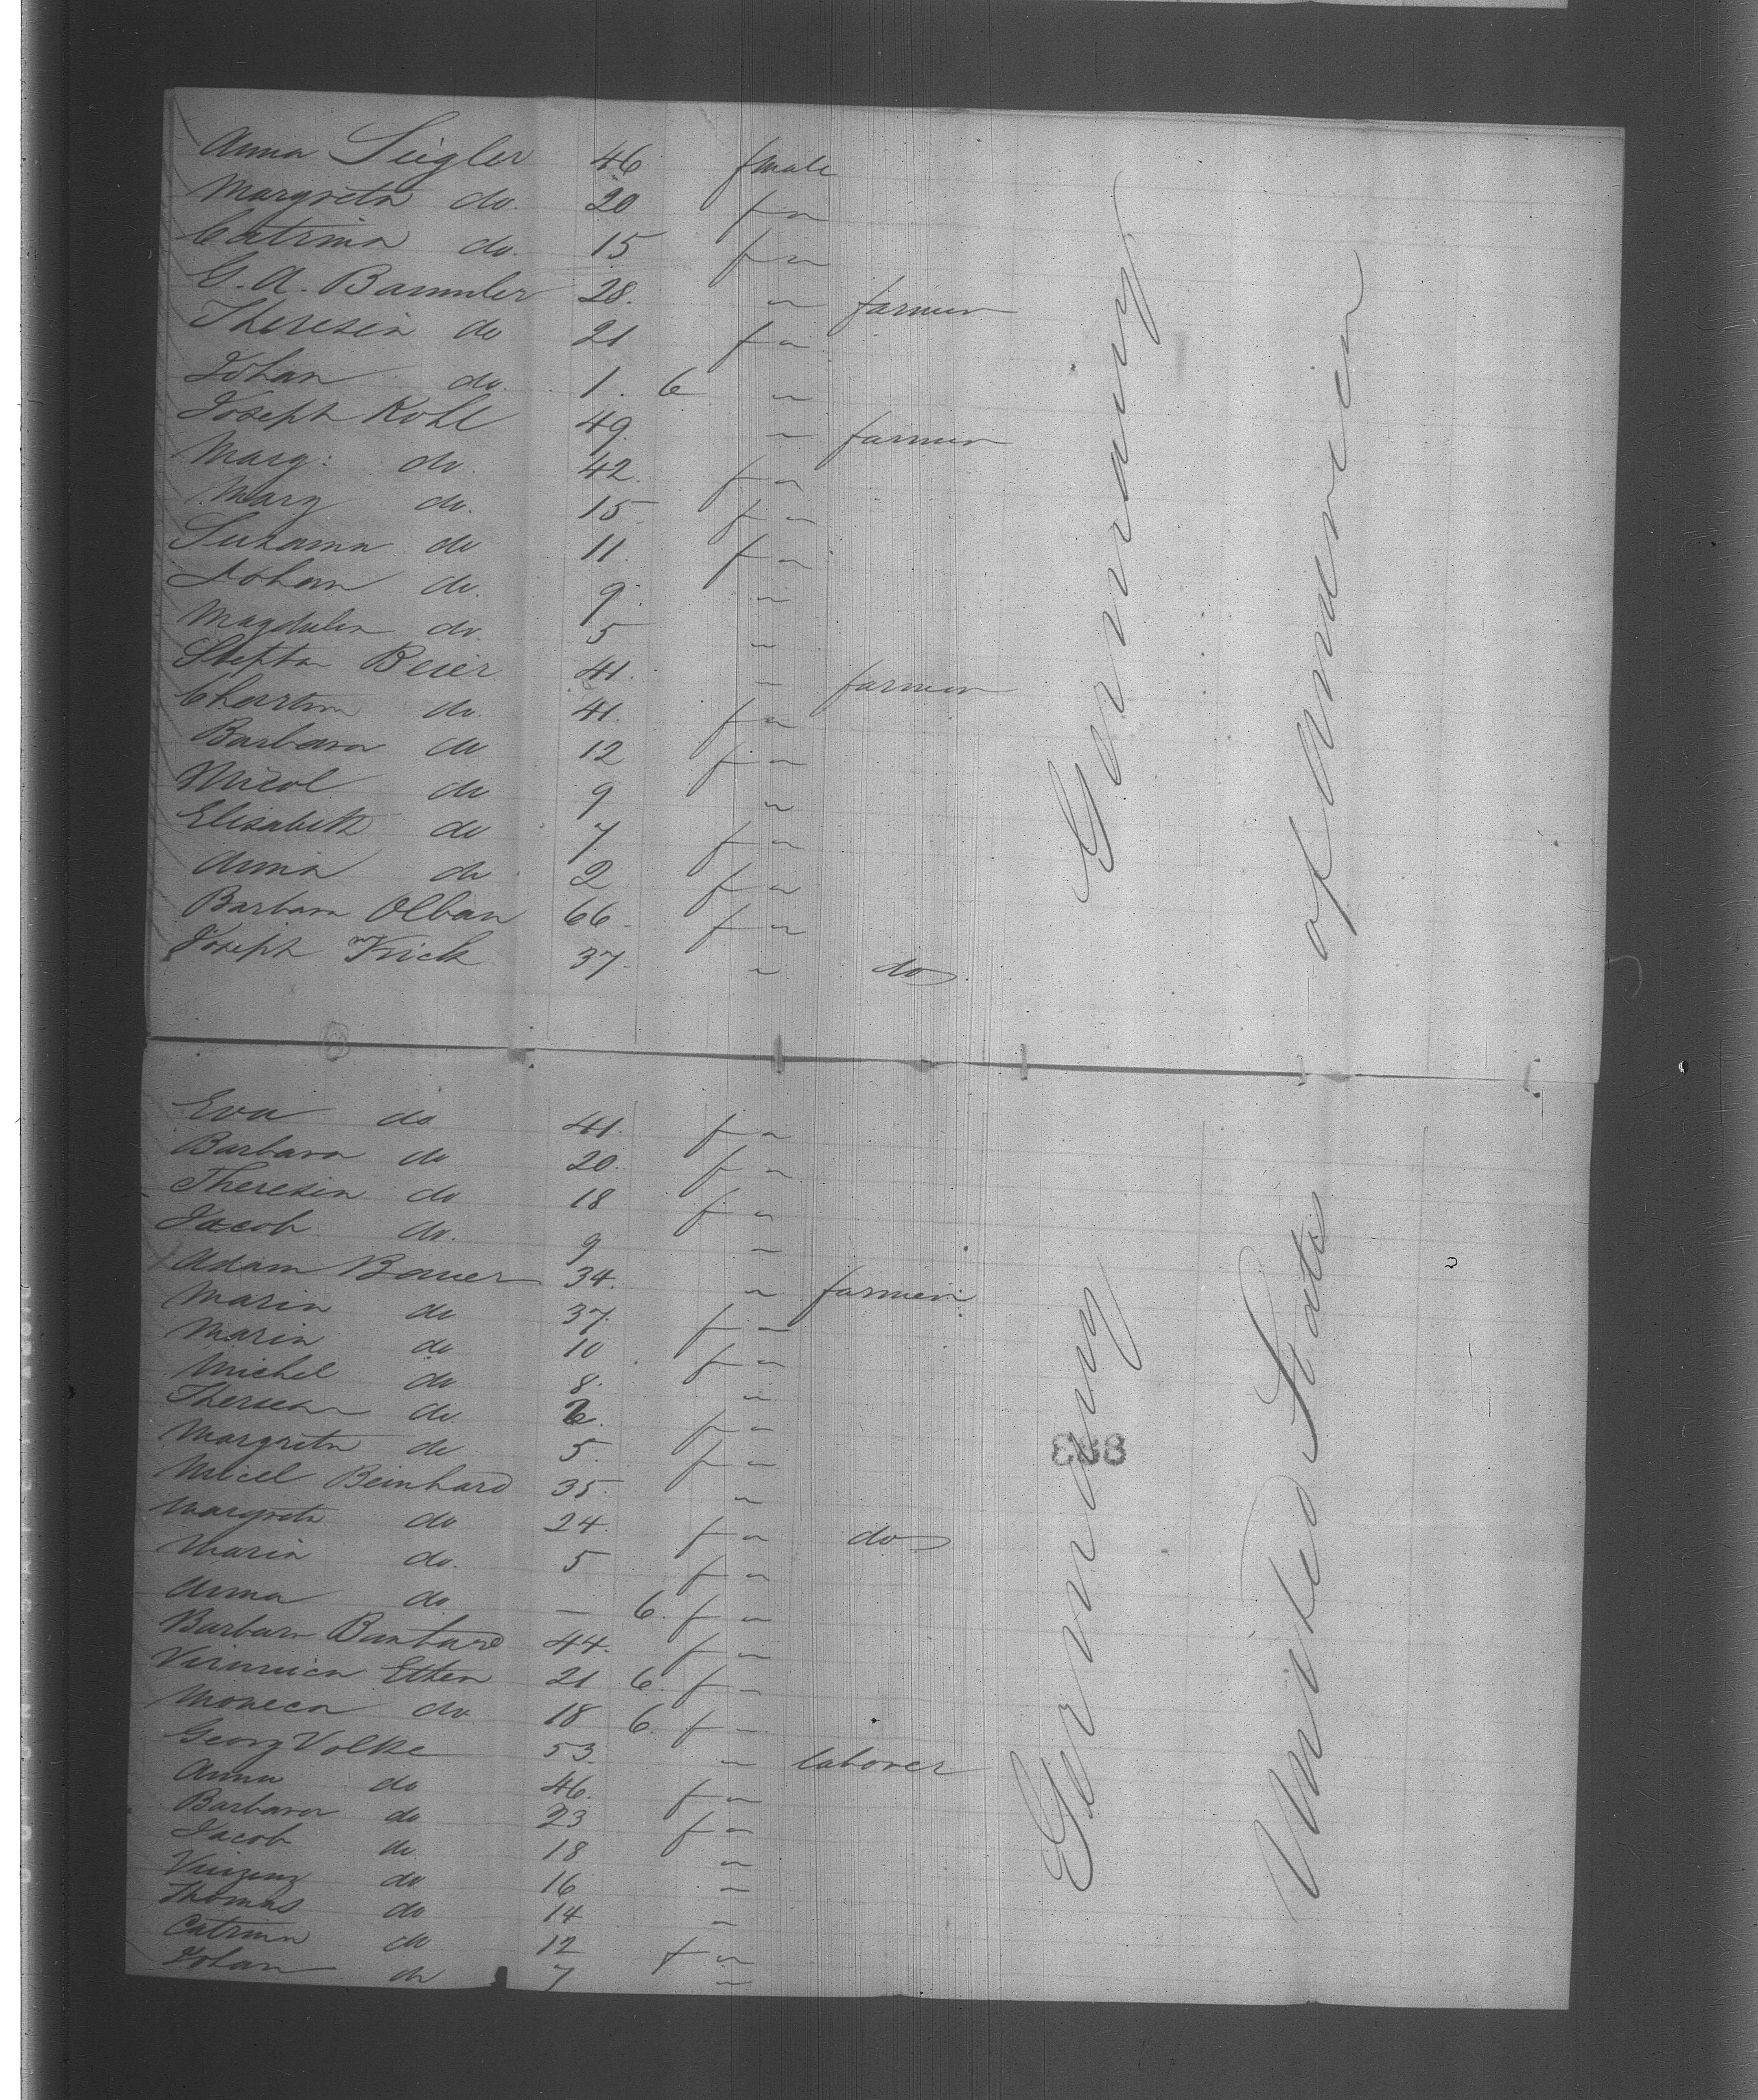 Anna Siegler 46 fmale
Margreta do. 20 f "
Catrina do. 15 f "
G. A. Bammler 28. " farmer
Theresia do 21 f "
Johan do. 1. 6 "
Joseph Kohl 49. " farmer
Marg: do. 42. f "
Mary do. 15 f "
Susanna do 11. f "
Johan do. 9. "
Magdalen do. 5 "
Stephan Beier 41. " farmer
do. 41. f "
Barbara do 12 f "
Nicol do 9 "
Elisabeth do 7 f "
Anna do 2 f "
Barbara Olban 66 f "
Joseph Frick 37. " do
Germany
of America
Eva do 41. f "
Barbara do 20. f "
Theresia do 18 f "
Jacob do. 9 "
Adam Bauer 34. " farmer
Maria do 37. f "
Maria do 10 f "
Michel do 8. "
Theresa do. 6. f "
Margreta do 5. f "
Micel Beinhard 35. "
Margreta do 24. f " do
Maria do. 5 f "
Anna do — 6. f "
Barbara 44. f "
Veronica Etten 21 6. f "
Moneca do 18 6. f "
Georg Volke 53. " laborer
Anna do 46. f "
Barbara do 23 f "
Jacob do 18 "
Vinzenz do 16 "
Thomas do 14 "
Catrina do 12 f "
Johan do 7 "
Germany
883
United States